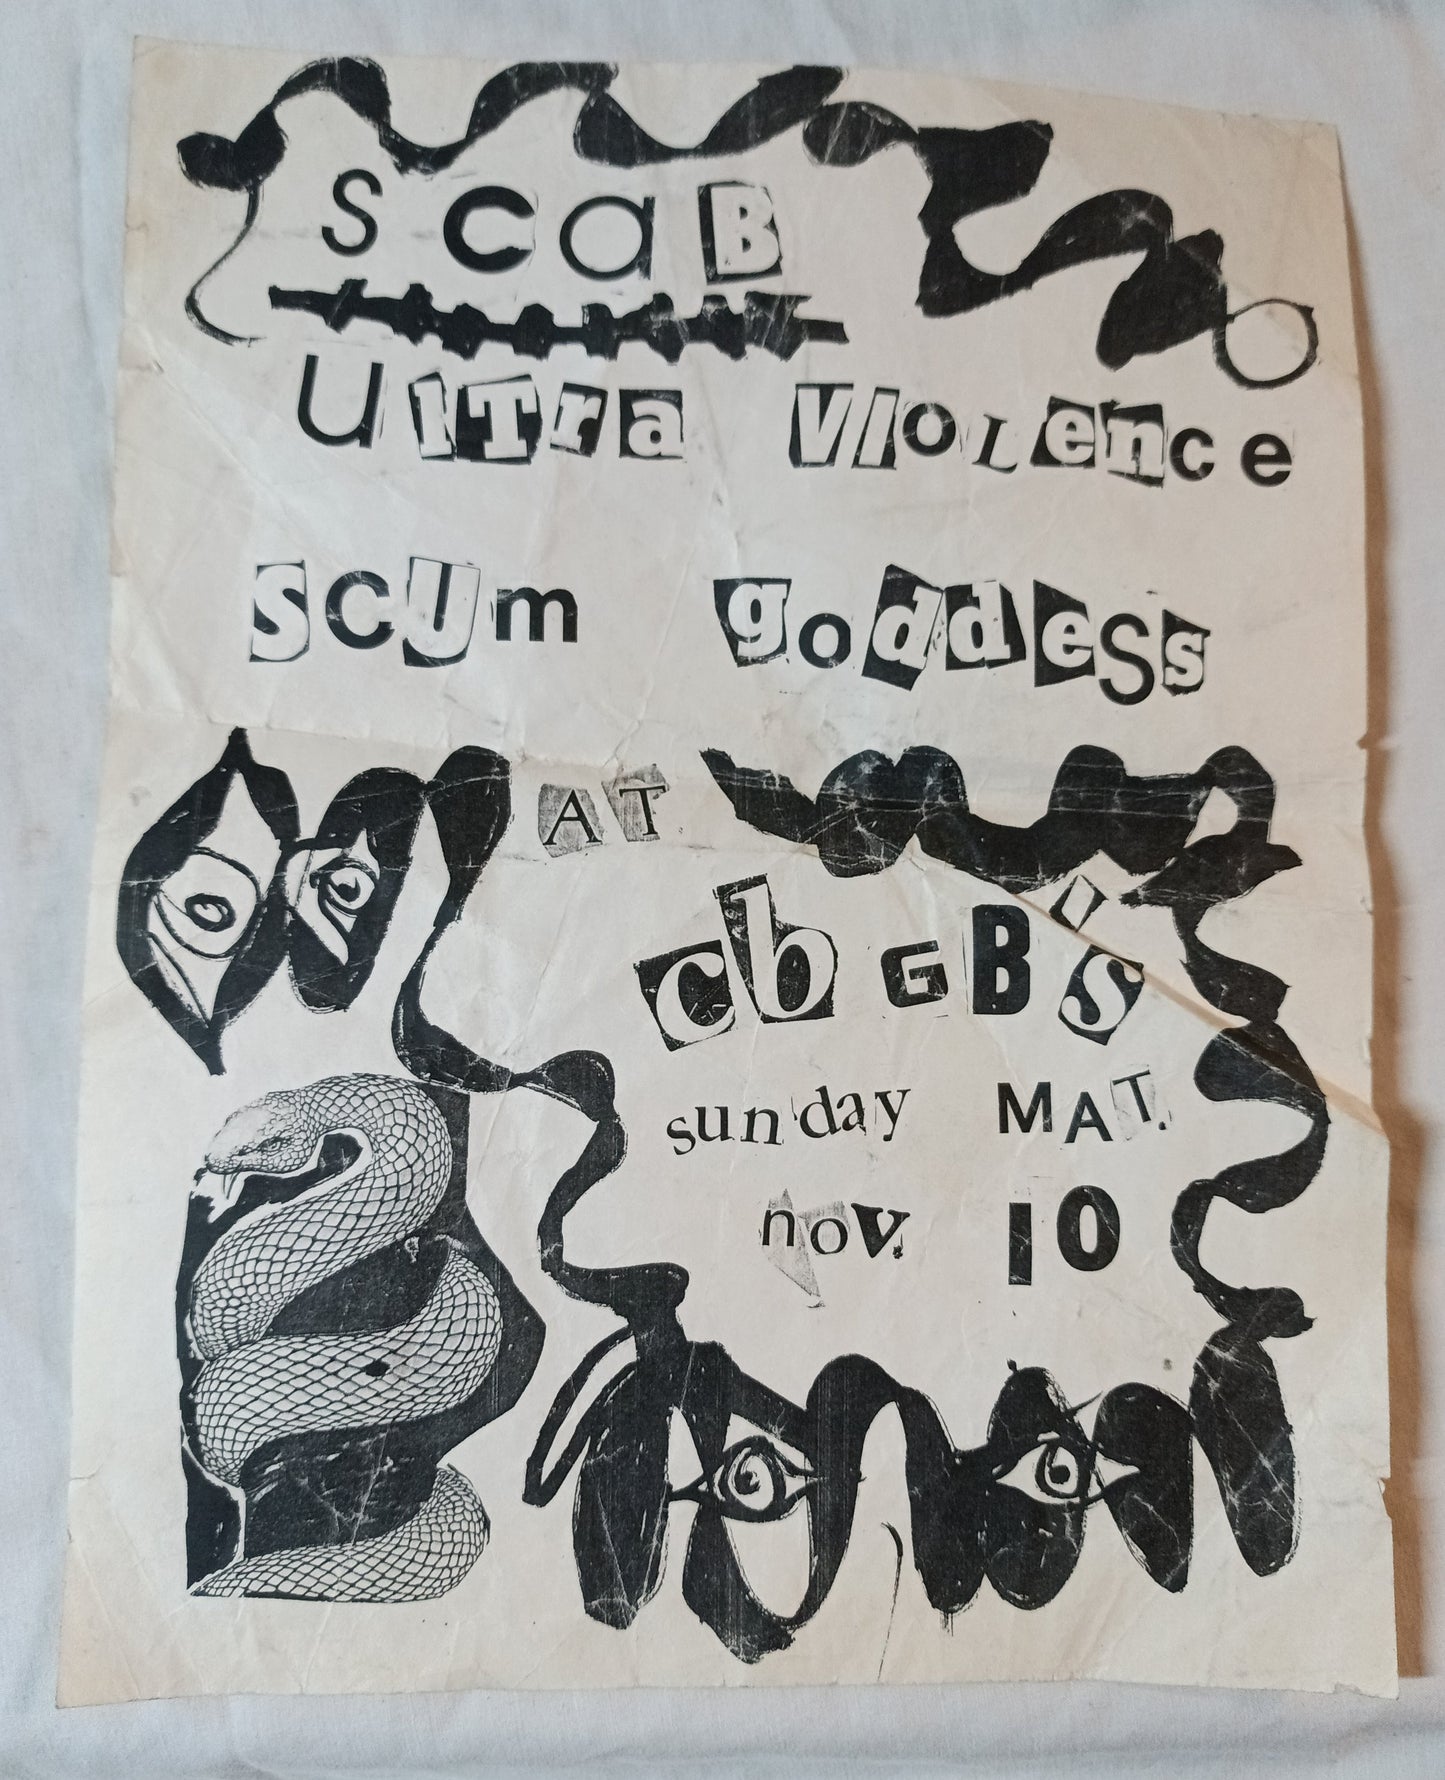 scaB
UlTra VIoLence
SCUm goddesS
AT
cb GB's
sunday MAT.
nov. 10